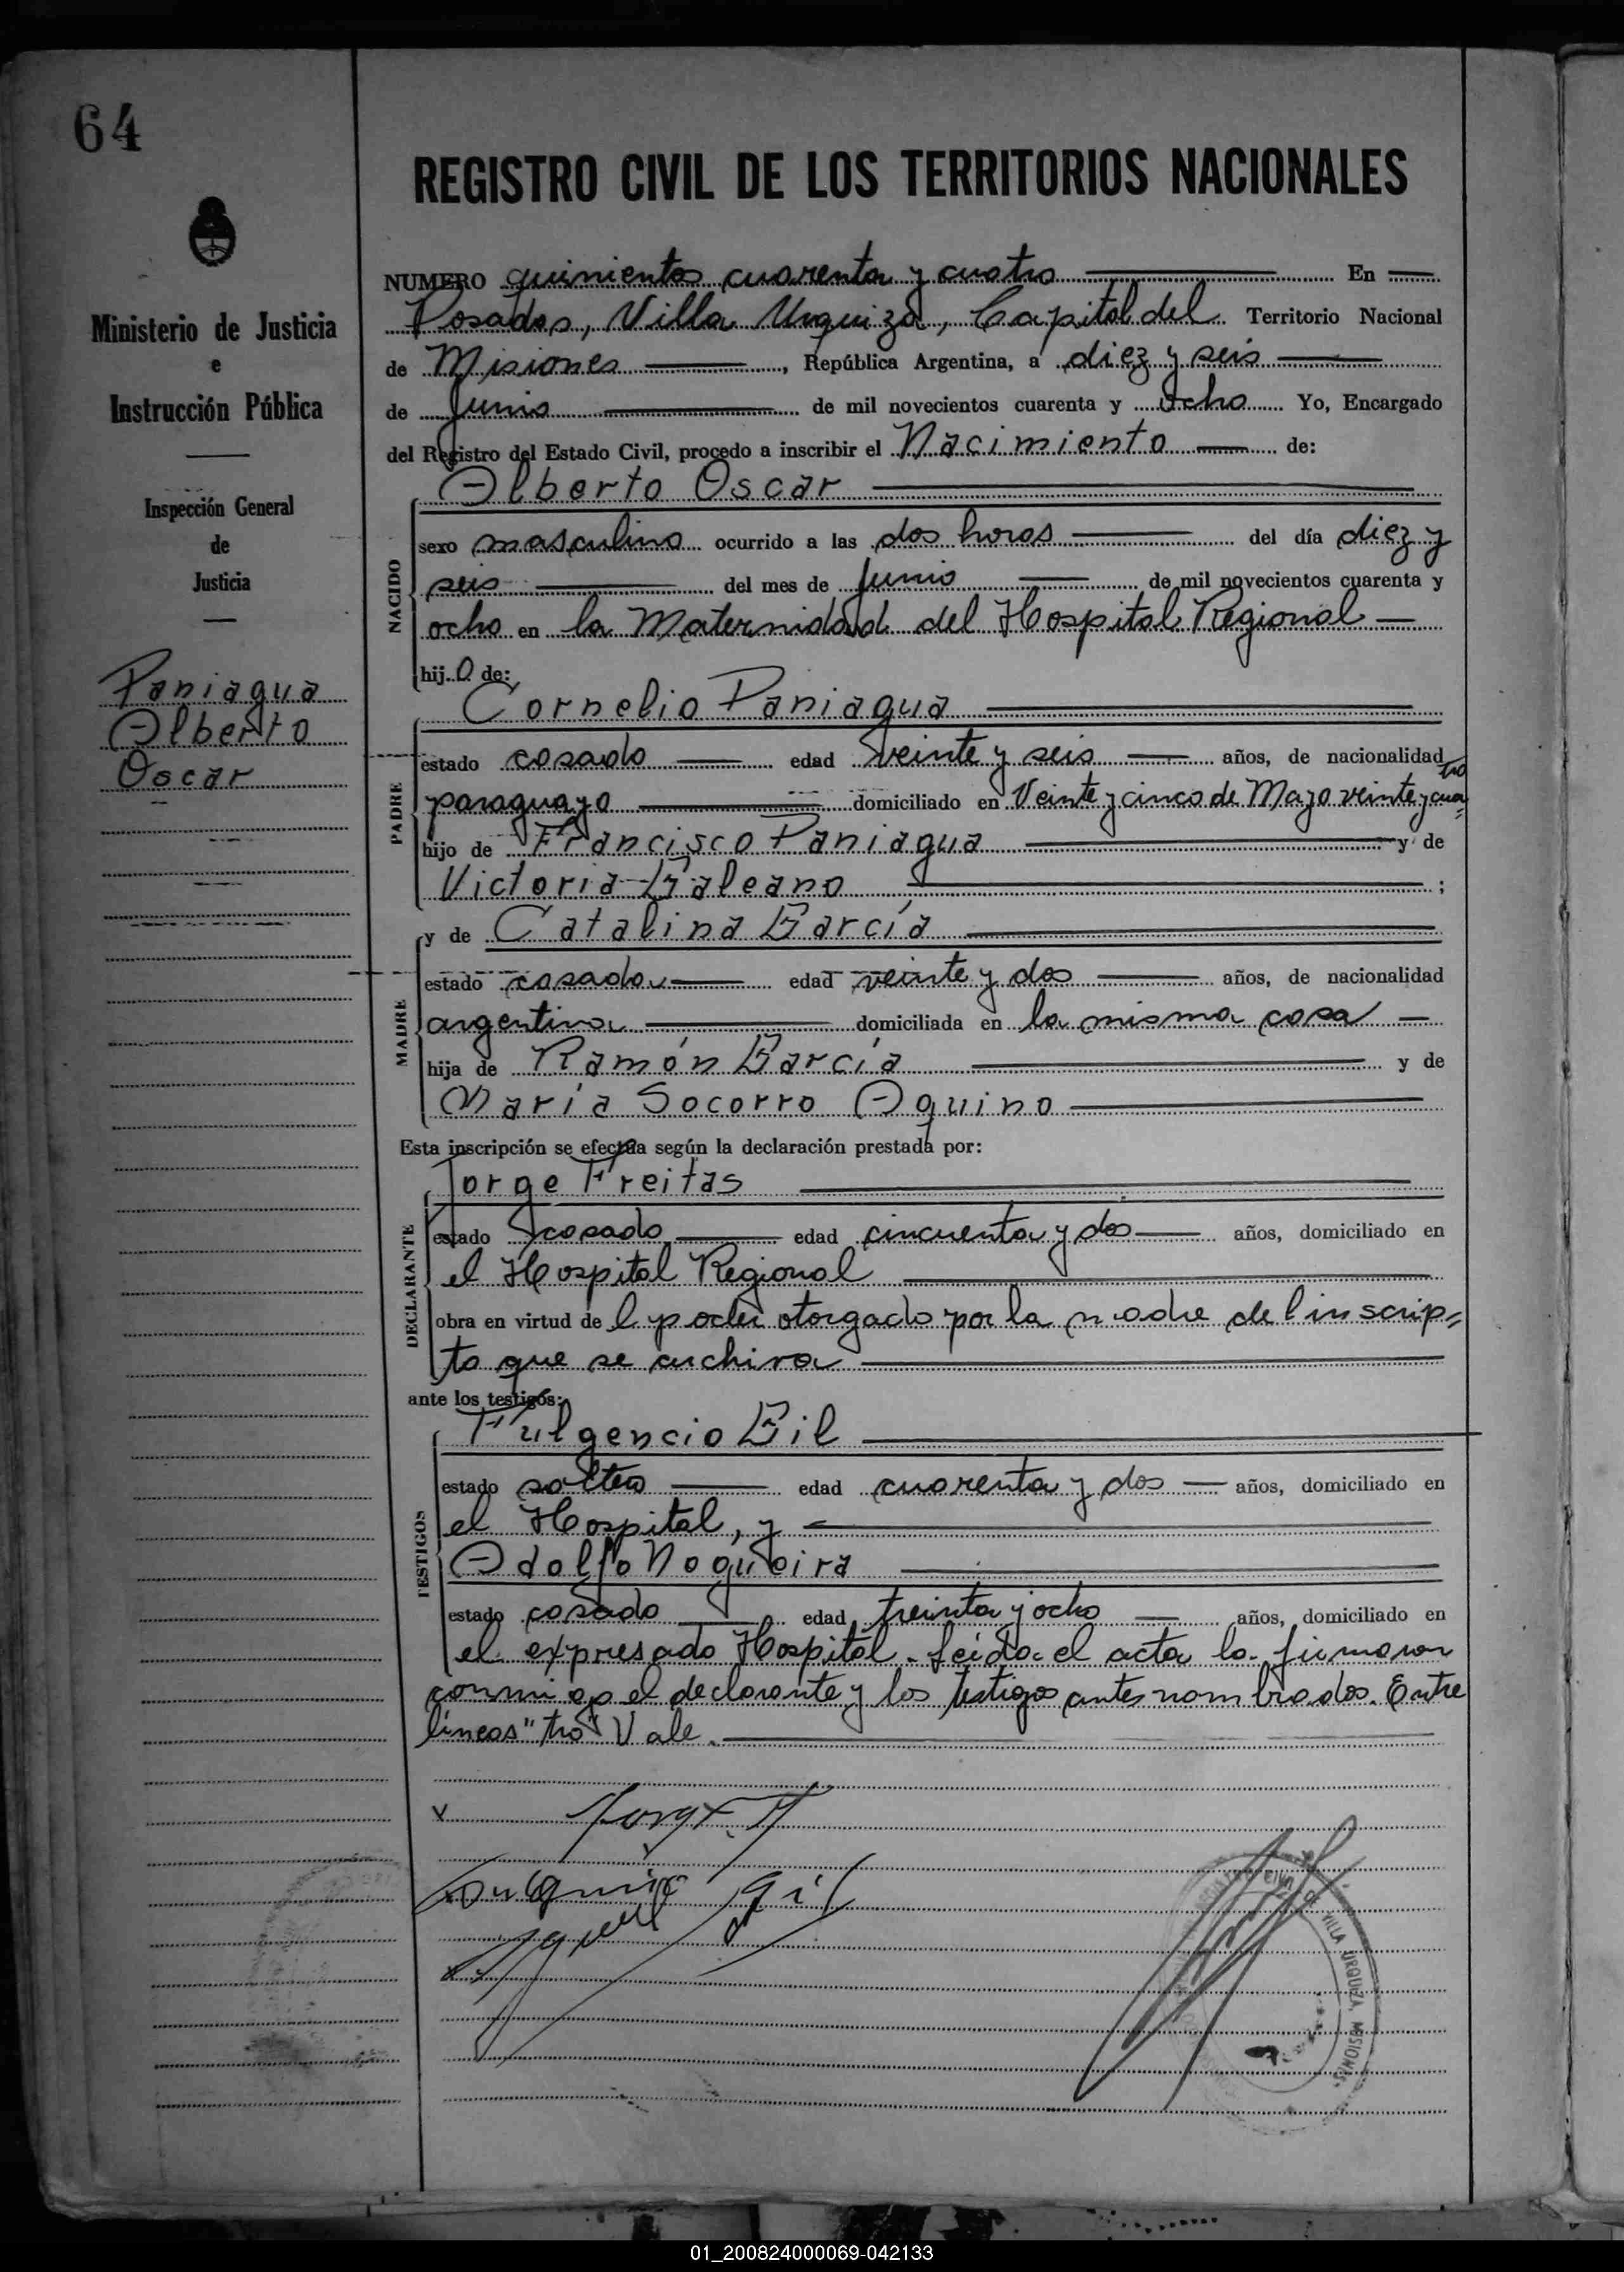 64
REGISTRO CIVIL DE LOS TERRITORIOS NACIONALES
Ministerio de Justicia
e
Instrucción Pública
Inspección General
de
Justicia
Paniagua
Alberto
Oscar
NUMERO quinientos cuarenta y cuatro En
Posadas, Villa Urquiza, Capital del Territorio Nacional
de Misiones, República Argentina, a diez y seis
de Junio de mil novecientos cuarenta y ocho Yo, Encargado
del Registro del Estado Civil, procedo a inscribir el Nacimiento de:
Alberto Oscar
NACIDO
sexo masculino ocurrido a las dos horas del día diez y
seis del mes de Junio de mil novecientos cuarenta y
ocho en la Maternidad del Hospital Regional
hijo de:
Cornelio Paniagua
PADRE
estado casado edad veinte y seis años, de nacionalidad
tro
paraguayo domiciliado en Veinte y cinco de Mayo veinte y cua=
hijo de Francisco Paniagua y de
Victoria Galeano ;
y de Catalina García
MADRE
estado casada edad veinte y dos años, de nacionalidad
argentina domiciliada en la misma casa
hija de Ramón García y de
María Socorro Aquino
Esta inscripción se efectúa según la declaración prestada por:
Jorge Freitas
DECLARANTE
estado casado edad cincuenta y dos años, domiciliado en
el Hospital Regional
obra en virtud de l poder otorgado por la madre del inscrip=
to que se archiva
ante los testigos:
Fulgencio Gil
TESTIGOS
estado soltero edad cuarenta y dos años, domiciliado en
el Hospital, y
Adolfo Nogueira
estado casado edad treinta y ocho años, domiciliado en
el expresado Hospital. Leída el acta la firmaron
conmigo el declarante y los testigos antes nombrados. Entre
líneas "tro" Vale.
Gil
CIVIL DE VILLA URQUIZA, MISIONES
01_200824000069-042133